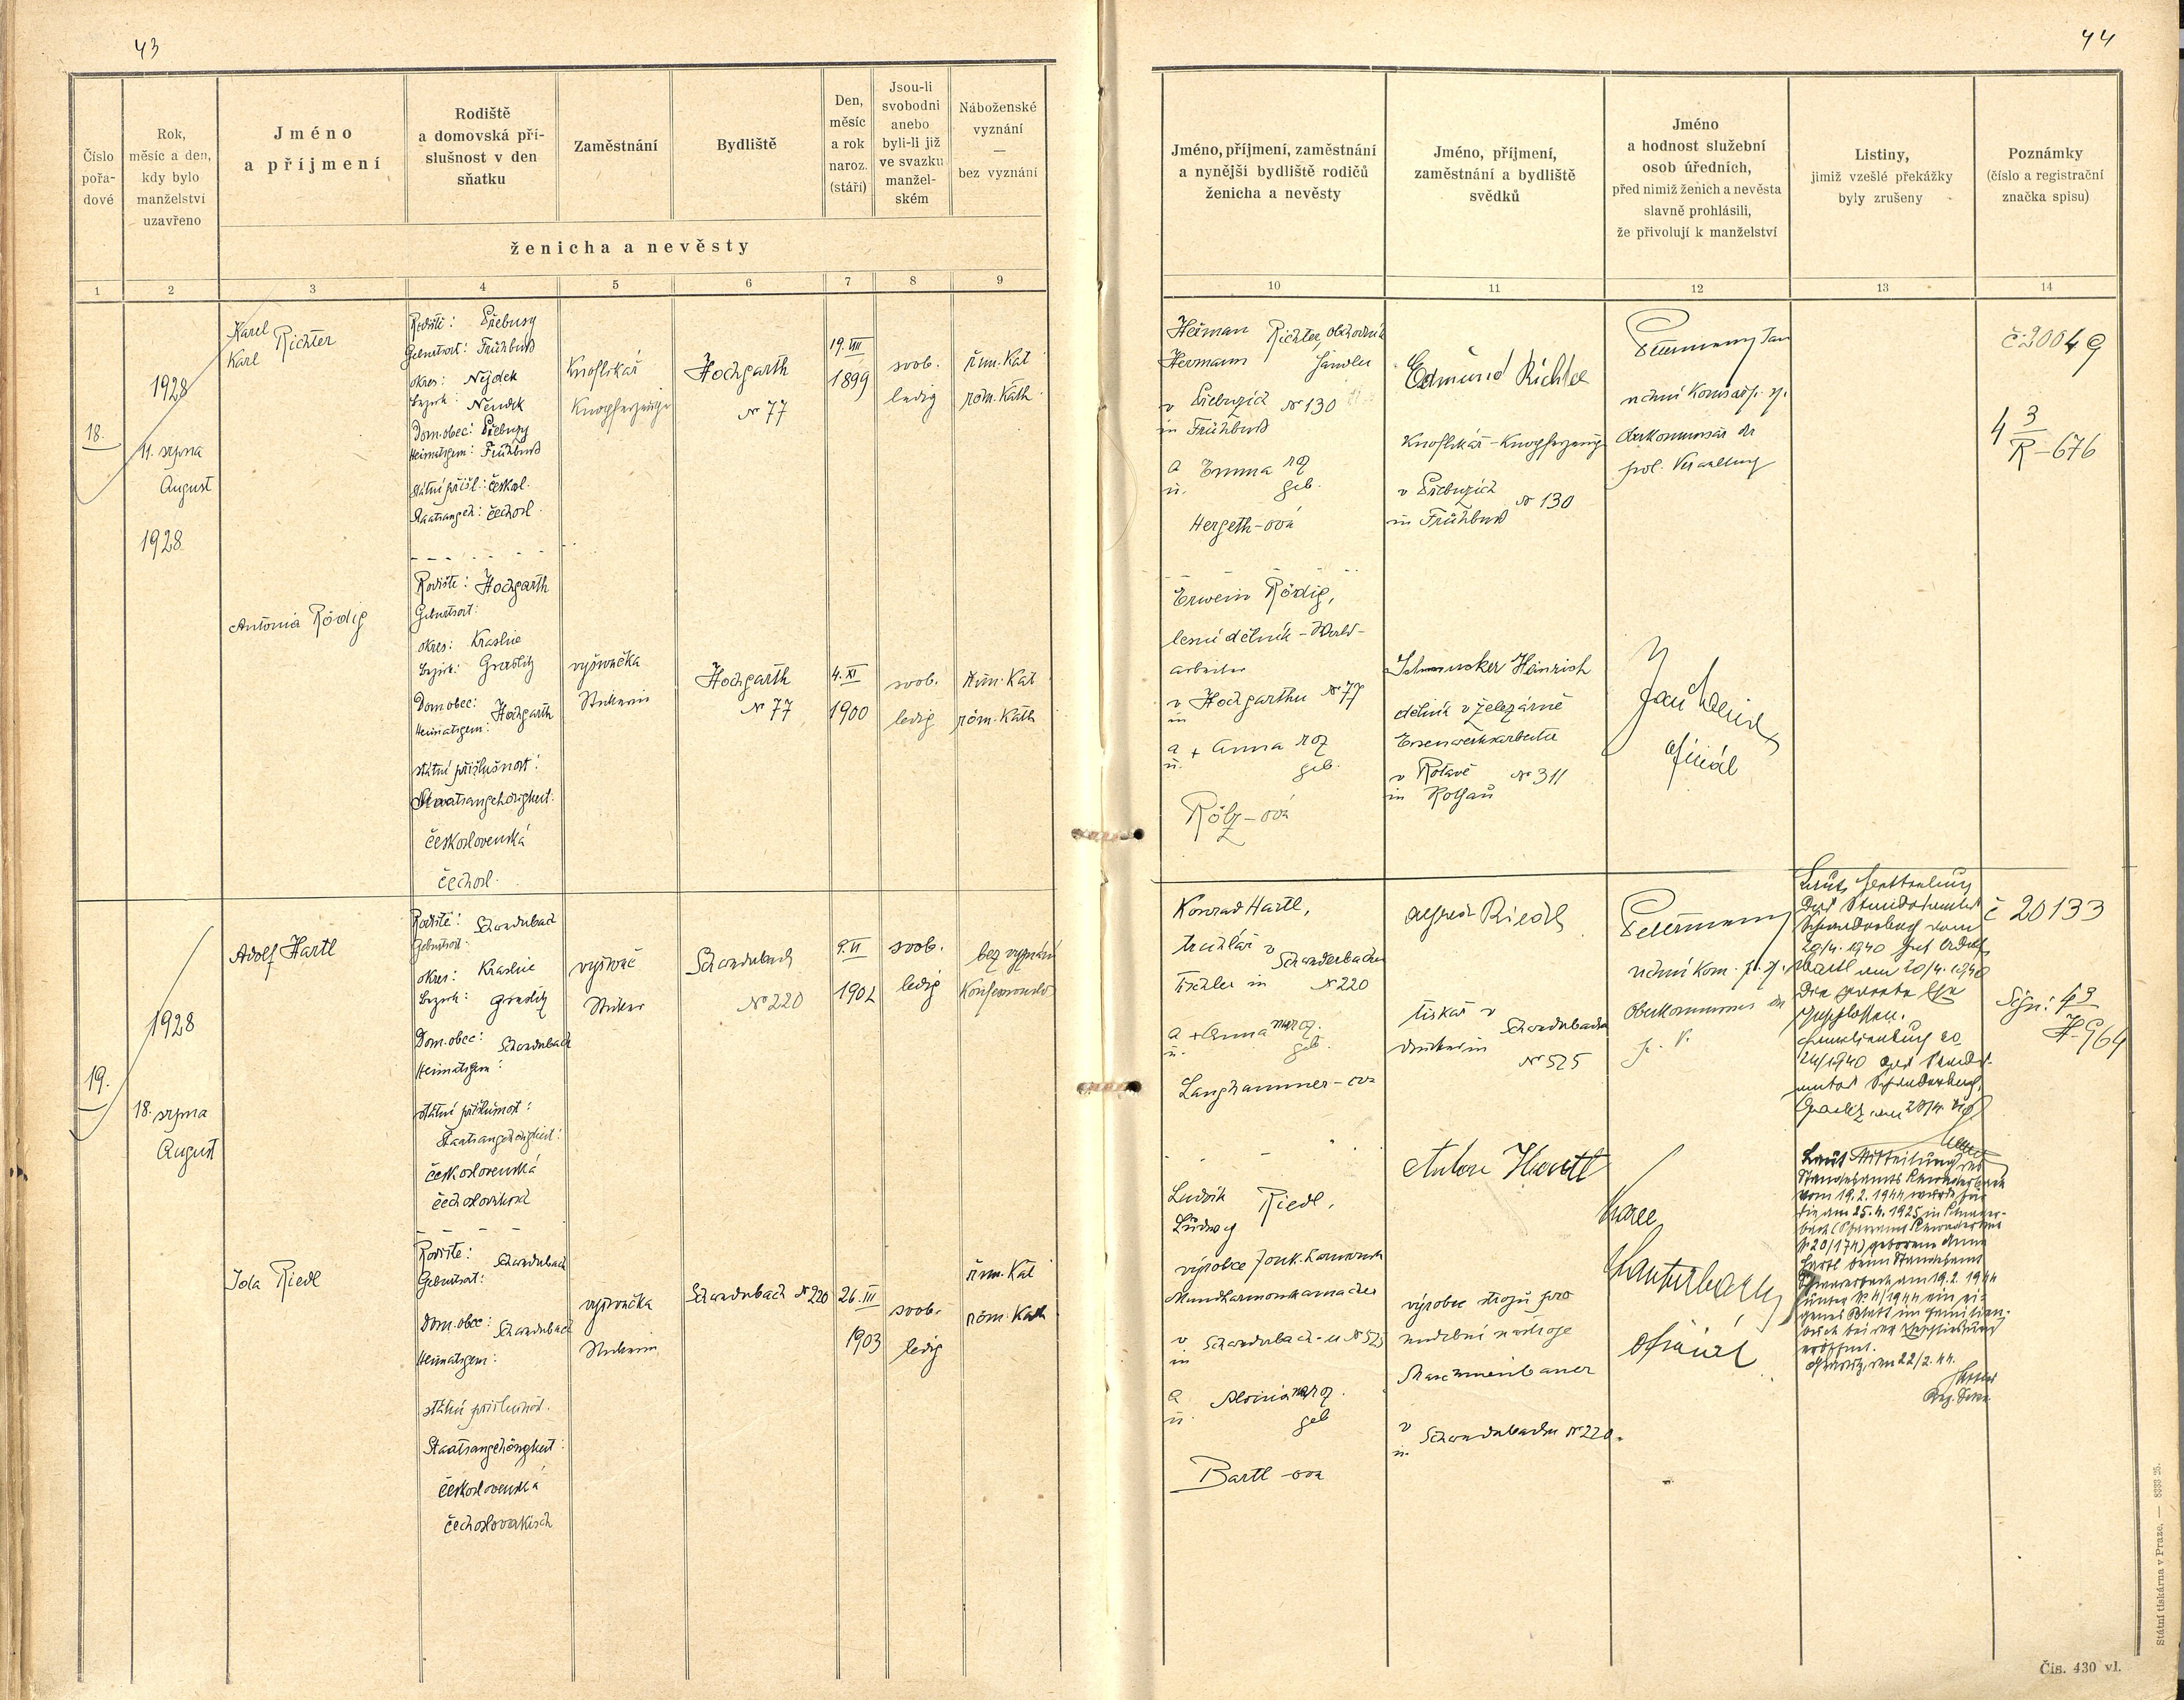 43
Číslo
pořa-
dové
Rok,
měsíc a den,
kdy bylo
manželství
uzavřeno
Jméno
a příjmení
Rodiště
a domovská pří-
slušnost v den
sňatku
Zaměstnání
Bydliště
Den,
měsíc
a rok
naroz.
(stáří)
Jsou-li
svobodni
anebo
byli-li již
ve svazku
manžel-
ském
Náboženské
vyznání
—
bez vyznání
ženicha a nevěsty
1 2 3 4 5 6 7 8 9
18.
1928
11. srpna
August
1928
Karel
Karl
Richter
Rodiště: Přebuzy
Geburtsort: Frühbuß
okres: Nejdek
Bezirk: Neudek
Dom.obec: Přebuzy
Heimatsgem: Frühbuß
státní přísl.: českosl.
Staatsangeh: čechosl.
Knoflíkář
Knopferzeuger
Hochgarth
№ 77
19. VIII
1899
svob.
ledig
řím. Kat
röm. Kath.
Antonia Rödig
Rodiště: Hochgarth
Geburtsort:
okres: Kraslice
Bezirk: Graslitz
Dom.obec: Hochgarth
Heimatsgem:
státní příslušnost:
Staatsangehörigkeit:
československá
čechosl.
vyšívačka
Stickerin
Hochgarth
№ 77
4. XI
1900
svob.
ledig
řím. Kat
röm. Kath
19.
1928
18. srpna
August
Adolf Hartl
Rodiště: Schwaderbach
Geburtsort:
okres: Kraslice
Bezirk: Graslitz
Dom.obec: Schwaderbach
Heimatsgem:
státní příslušnost:
Staatsangehörigkeit:
československá
vyšívač
Sticker
Schwaderbach
№ 220
9. II
1902
svob.
ledig
bez vyznání
Konfessionslos
Ida Riedl
Rodiště: Schwaderbach
Geburtsort:
Dom.obec: Schwaderbach
Heimatsgem:
státní příslušnost.
Staatsangehörigkeit:
československá
čechoslovakisch
vyšívačka
Stickerin
Schwaderbach № 220
26. III
1903
svob.
ledig
řím. Kat
röm. Kath
44
Jméno, příjmení, zaměstnání
a nynější bydliště rodičů
ženicha a nevěsty
Jméno, příjmení,
zaměstnání a bydliště
svědků
Jméno
a hodnost služební
osob úředních,
před nimiž ženich a nevěsta
slavně prohlásili,
že přivolují k manželství
Listiny,
jimiž vzešlé překážky
byly zrušeny
Poznámky
(číslo a registrační
značka spisu)
10 11 12 13 14
Heřman Richter, obchodník
Hermann Händler
v Přebuzích № 130
in Frühbuß
a Emma roz
u. geb.
Hergeth-ová
Edmund Richter
Knoflíkář-Knopferzeuger
v Přebuzích № 130
in Frühbuß
Petermann Jan
vrchní Komisař p. s.
Oberkommissär der
pol. Verwaltung
č: 20049
4 3/R-676
Erwein Rödig,
lesní dělník - Wald-
arbeiter
v Hochgarthu № 77
in
a + Anna roz
u. geb.
Rölz-ová
Schmucker Heinrich
dělník v železárně
Eisenwerksarbeiter
v Rotavě № 311
in Rothau
oficiál
Konrad Hartl,
truhlář v
Schwaderbachu
Tischler in № 220
a + Anna roz.
u. geb.
Langhammer-ová
Alfred Riedl
tiskař v
Schwaderbachu
Drucker in
№ 525
Petermann
vrchní Kom. p. s.
Oberkommissär der
p. V.
Laut Mitteilung
des Standesamtes
Schwaderbach vom
20/4. 1940 hat Adolf
Hartl am 20/4. 1940
die zweite Ehe
geschlossen.
č 20133
Sign: 43
H-964
Ludvík
Ludwig
Riedl,
výrobce fouk. harmonik
Mundharmonikamacher
v Schwaderbach-u № 525
in
a Aloisia roz.
u. geb
Bartl-ová
Anton Hartl
výrobce strojů pro
hudební nástroje
Maschinenbauer
v Schwaderbachu № 220.
in
Karel
oficiál
Laut Mitteilung des
Standesamts Schwaderbach
vom 19.2.1944 wurde für
die am 25.4.1925 in Schwader-
bach (Pfarramt Schwaderbach
№ 20/174) geborene Anna
Hartl beim Standesamt
Schwaderbach am 19.2.1944
unter № 4/1944 ein ei-
genes Blatt im Familien-
buch bei der Eheschließung
eröffnet.
Graslitz, den 22/2.44.
Státní tiskárna v Praze. — 8333 25.
Čís. 430 vl.